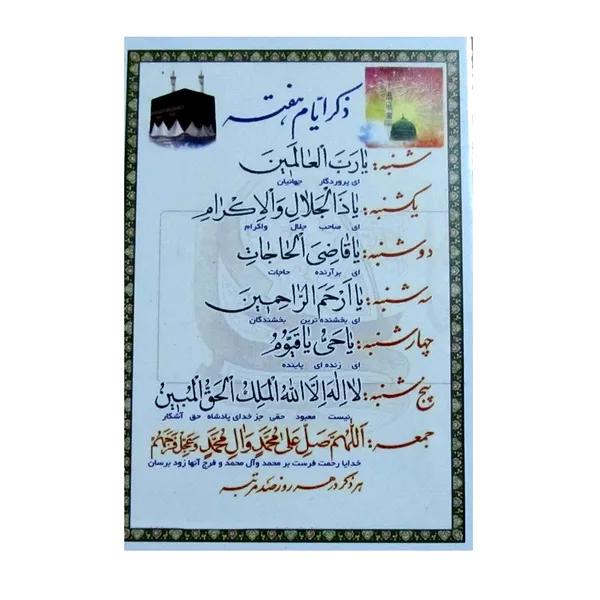 ذکر ایام هفته
شنبه: یا رَبَّ العالَمین
ای پروردگار جهانیان
یکشنبه: یا ذَالجَلالِ وَالاِکْرام
ای صاحب جلال واکرام
دوشنبه: یا قاضِیَ الحاجات
ای برآرنده حاجات
سه شنبه: یا اَرْحَمَ الرّاحِمین
ای بخشنده ترین بخشندگان
چهارشنبه: یا حَیُّ یا قَیّوُمُ
ای زنده ای پاینده
پنج شنبه: لا اِلهَ اِلَّا اللهُ المَلِکُ الحَقُّ المُبین
نیست معبود حقی جز خدای پادشاه حق آشکار
جمعه: اَللّهُمَّ صَلِّ عَلی مُحَمَّدٍ وَالِ مُحَمَّدٍ وَعَجِّل فَرَجَهُم
خدایا رحمت فرست بر محمد وآل محمد و فرج آنها زود برسان
هر ذکر در هر روز صد مرتبه